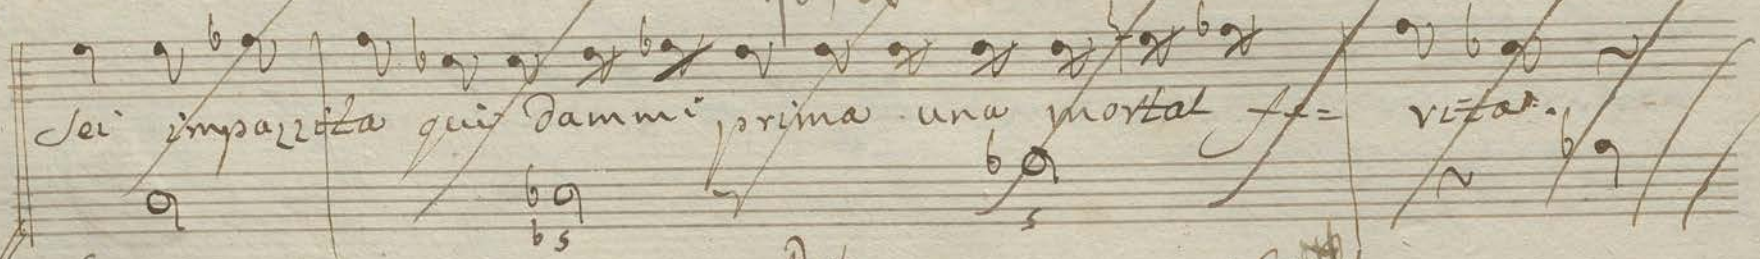 Sei impazzita qui dammi prima una mortal fe= rita.
♭5 5